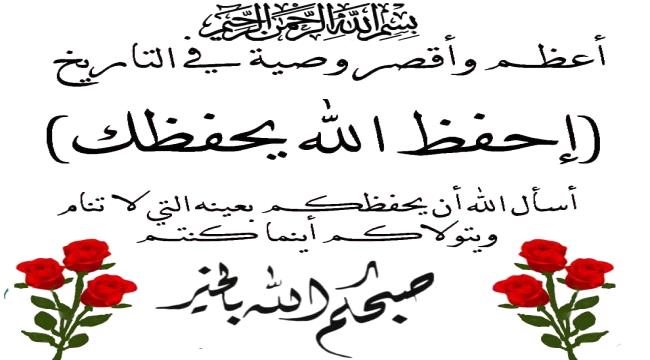 بسم الله الرحمن الرحيم
أعظم وأقصر وصية في التاريخ
(إحفظ الله يحفظك)
أسأل الله أن يحفظكم بعينه التي لا تنام
ويتولاكم أينما كنتم
صبحكم الله بالخير